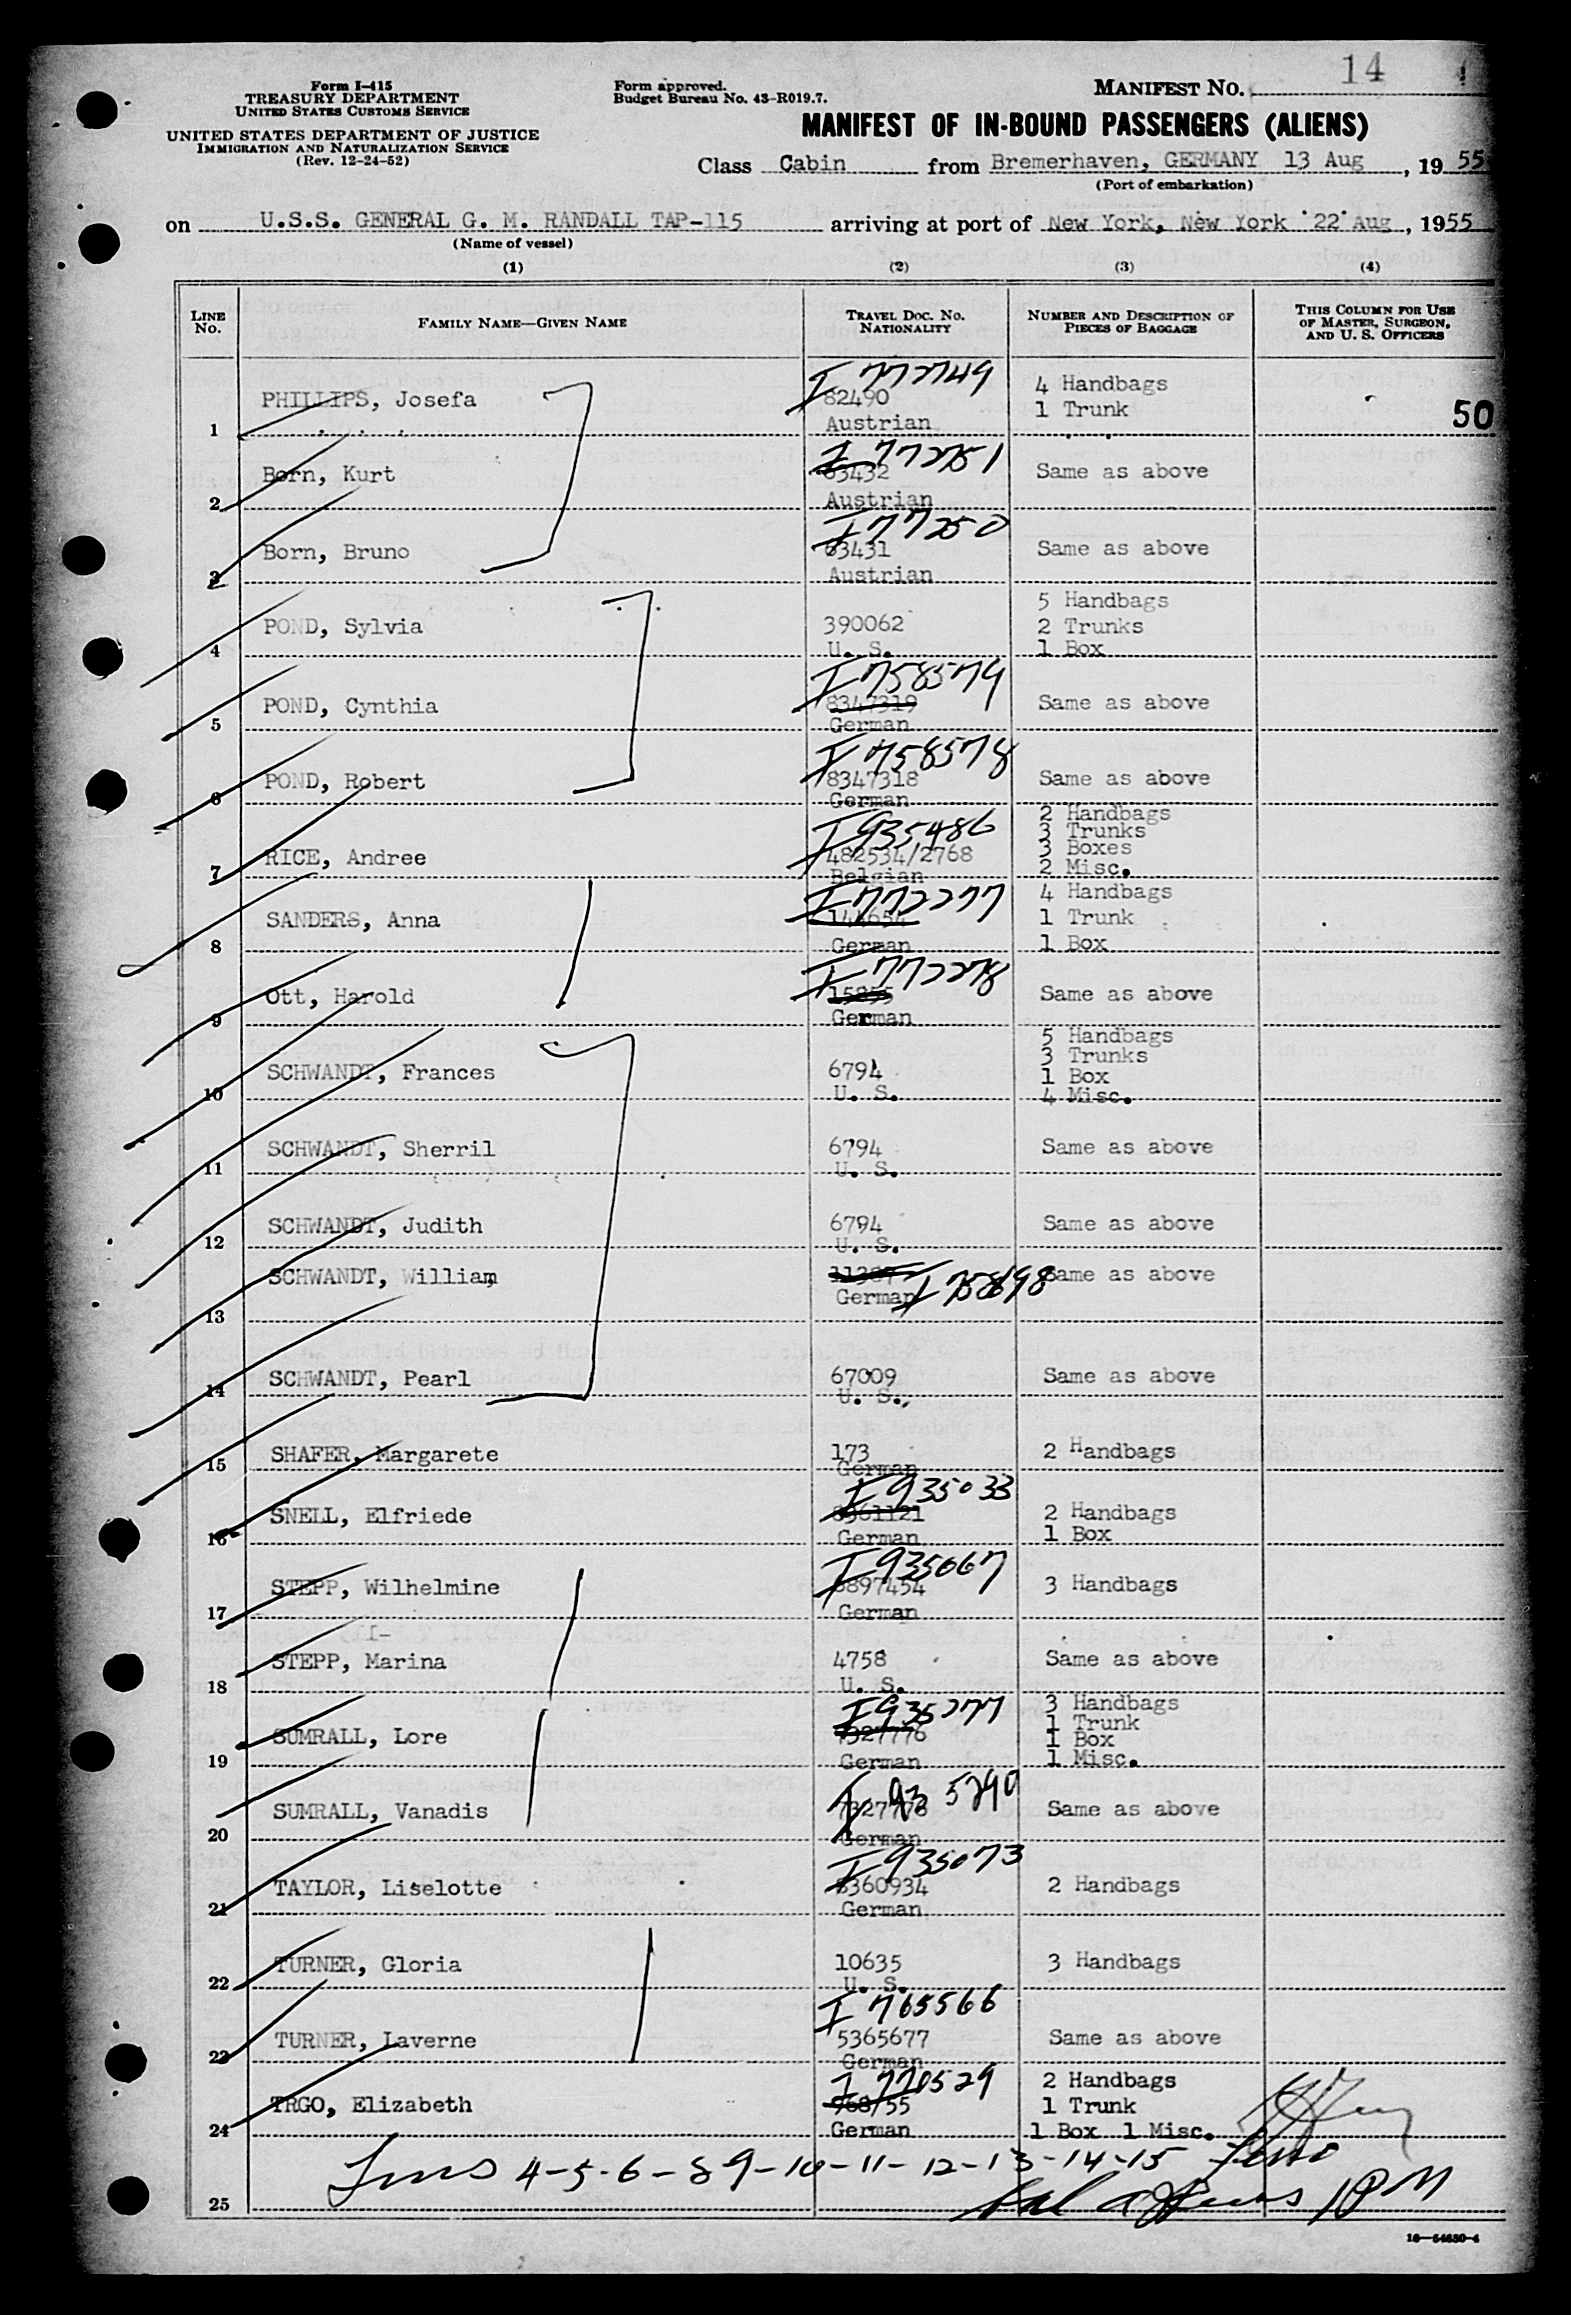 Form I-415
TREASURY DEPARTMENT
UNITED STATES CUSTOMS SERVICE
UNITED STATES DEPARTMENT OF JUSTICE
IMMIGRATION AND NATURALIZATION SERVICE
(Rev. 12-24-52)
Form approved.
Budget Bureau No. 43-R019.7.
MANIFEST NO. 14
MANIFEST OF IN-BOUND PASSENGERS (ALIENS)
Class Cabin from Bremerhaven, GERMANY 13 Aug, 1955
(Port of embarkation)
on U.S.S. GENERAL G. M. RANDALL TAP-115 arriving at port of New York, New York 22 Aug, 1955
(Name of vessel)
(1) (2) (3) (4)
LINE NO. FAMILY NAME—GIVEN NAME TRAVEL DOC. NO. NATIONALITY NUMBER AND DESCRIPTION OF PIECES OF BAGGAGE THIS COLUMN FOR USE OF MASTER, SURGEON, AND U. S. OFFICERS
I 772749
1 PHILLIPS, Josefa 82490 Austrian 4 Handbags 1 Trunk 50
I 772751
2 Born, Kurt 63432 Austrian Same as above
I 77250
3 Born, Bruno 63431 Austrian Same as above
4 POND, Sylvia 390062 U. S. 5 Handbags 2 Trunks 1 Box
I 758579
5 POND, Cynthia 8347319 German Same as above
I 758578
6 POND, Robert 8347318 German Same as above
I 935486
7 RICE, Andree 482534/2768 Belgian 2 Handbags 3 Trunks 3 Boxes 2 Misc.
I 772277
8 SANDERS, Anna 144654 German 4 Handbags 1 Trunk 1 Box
I 772278
9 Ott, Harold German Same as above
10 SCHWANDT, Frances 6794 U. S. 5 Handbags 3 Trunks 1 Box 4 Misc.
11 SCHWANDT, Sherril 6794 U. S. Same as above
12 SCHWANDT, Judith 6794 U. S. Same as above
13 SCHWANDT, William German I 758698 Same as above
14 SCHWANDT, Pearl 67009 U. S. Same as above
15 SHAFER, Margarete 173 German 2 Handbags
I 935033
16 SNELL, Elfriede 8361121 German 2 Handbags 1 Box
I 935067
17 STEPP, Wilhelmine 6897454 German 3 Handbags
18 STEPP, Marina 4758 U. S. Same as above
I 935277
19 SUMRALL, Lore 7327776 German 3 Handbags 1 Trunk 1 Box 1 Misc.
I 935290
20 SUMRALL, Vanadis 7327778 German Same as above
I 935073
21 TAYLOR, Liselotte 8360934 German 2 Handbags
22 TURNER, Gloria 10635 U. S. 3 Handbags
I 765566
23 TURNER, Laverne 5365677 German Same as above
I 770529
24 TRGO, Elizabeth 968/55 German 2 Handbags 1 Trunk 1 Box 1 Misc.
Lines 4-5-6-8 9-10-11-12-13-14-15
25
16—54650-4